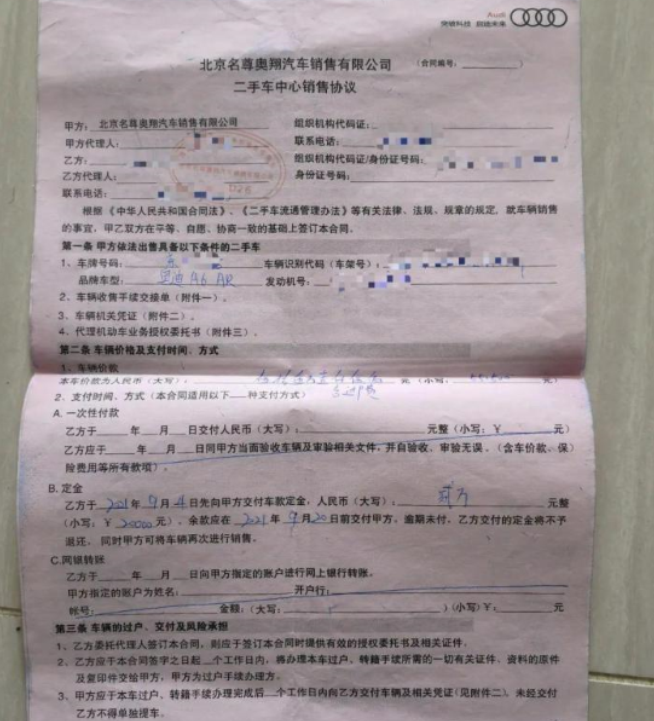 Audi
突破科技 启迪未来
北京名尊奥翔汽车销售有限公司 （合同编号：________）
二手车中心销售协议
甲方：北京名尊奥翔汽车销售有限公司 组织机构代码证：
甲方代理人： 联系电话：
乙方： 组织机构代码证/身份证号码：
乙方代理人： 身份证号码：
联系电话：
根据《中华人民共和国合同法》、《二手车流通管理办法》等有关法律、法规、规章的规定，就车辆销售
的事宜，甲乙双方在平等、自愿、协商一致的基础上签订本合同。
第一条 甲方依法出售具备以下条件的二手车
1、车牌号码：京 车辆识别代码（车架号）：
品牌车型：奥迪 A6 AR 发动机号：
2、车辆收售手续交接单（附件一）。
3、车辆相关凭证（附件二）。
4、代理机动车业务授权委托书（附件三）。
第二条 车辆价格及支付时间、方式
1、车辆价款
本车价款为人民币（大写）： 元（小写： 元）
2、支付时间、方式（本合同适用以下__种支付方式） 含过户费
A. 一次性付款
乙方于____年__月__日交付人民币（大写）：________元整（小写：￥____元）
乙方应于____年__月__日同甲方当面验收车辆及审验相关文件，并自验收、审验无误、（含车价款、保
险费用等所有款项）。
B. 定金
乙方于2021年9月4日先向甲方交付车款定金，人民币（大写）：贰万元整
（小写：￥20000元）、余款应在2021年9月20日前交付甲方，逾期未付，乙方交付的定金将不予
退还，同时甲方可将车辆再次进行销售。
C.网银转账
乙方于____年__月__日向甲方指定的账户进行网上银行转账。
甲方指定的账户为姓名：________开户行：________
帐号：________金额：（大写：________）（小写）￥：____元
第三条 车辆的过户、交付及风险承担
1、乙方委托代理人签订本合同，则应于签订本合同时提供有效的授权委托书及相关证件。
2、乙方应于本合同签字之日起__个工作日内，将办理本车过户、转籍手续所需的一切有关证件、资料的原件
及复印件交给甲方，甲方为过户手续办理方。
3、甲方应于本车过户、转籍手续办理完成后__个工作日内向乙方交付车辆及相关凭证（见附件二）。未经交付
乙方不得单独提车。